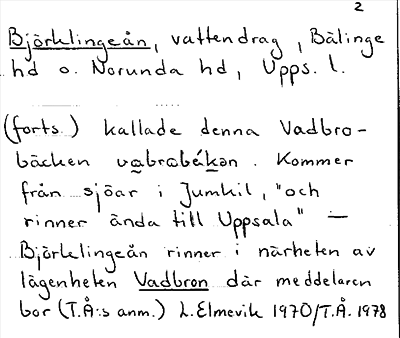 2
Björklingeån, vattendrag, Bälinge
hd o. Norunda hd, Upps. l.
(forts.) kallade denna Vadbro-
bäcken vabrobékən. Kommer
från sjöar i Jumkil, "och
rinner ända till Uppsala" —
Björklingeån rinner i närheten av
lägenheten Vadbron där meddelaren
bor (T.Å:s anm.) L. Elmevik 1970/T.Å. 1978